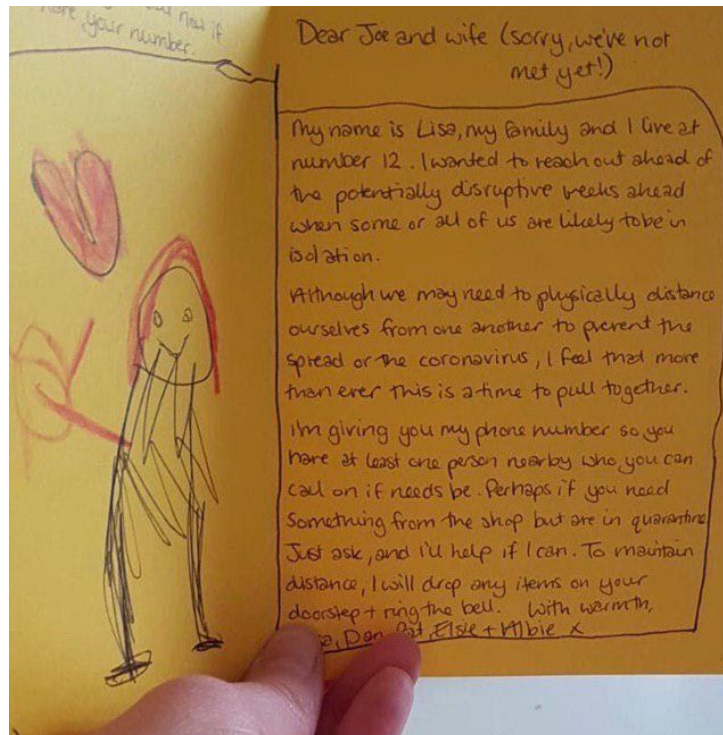 now if
your number.
Dear Joe and wife (sorry, we've not
met yet!)
My name is Lisa, my family and I live at
number 12. I wanted to reach out ahead of
the potentially disruptive weeks ahead
when some or all of us are likely to be in
isolation.
Although we may need to physically distance
ourselves from one another to prevent the
spread or the coronavirus, I feel that more
than ever this is a time to pull together.
I'm giving you my phone number so you
have at least one person nearby who you can
call on if needs be. Perhaps if you need
something from the shop but are in quarantine
Just ask, and I'll help if I can. To maintain
distance, I will drop any items on your
doorstep + ring the bell. With warmth,
Dan, Elsie + Albie x